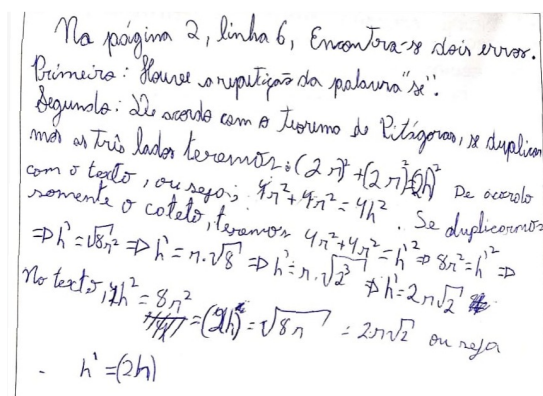 Na página 2, linha 6, Encontra-se dois erros.
Primeiro: Houve a repetição da palavra "se".
Segundo: De acordo com o Teorema de Pitágoras, se duplicar
mos os três lados teremos: (2r)²+(2r)²=(2h)² De acordo
com o texto, ou seja; 4r²+4r²=4h². Se duplicarmos
somente o cateto, teremos 4r²+4r²=h'² ⇒ 8r²=h'² ⇒
⇒ h'=√8r² ⇒ h'=r.√8 ⇒ h'=r.√2³ ⇒ h'=2r√2
No texto, 4h²=8r²
=(2h)=√8r = 2r√2 ou seja
h'=(2h)